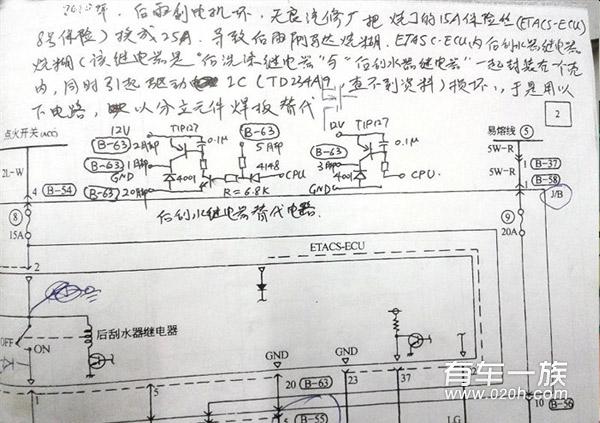 年，后雨刮电机坏，无良汽修厂把烧了的15A保险丝(ETACS-ECU
8号保险）换成25A，导致后雨刮马达烧糊，ETACS-ECU内后刮水器继电器
烧糊(该继电器是"后洗涤继电器"与"后刮水器继电器"一起封装在一个壳
内，同时引起驱动 IC(TD234A 查不到资料)损坏，于是用以
下电路，以分立元件焊板替代
2
点火开关(ACC)
12V
TIP127
B-63
12V
TIP127
易熔线 5
B-63 2脚
0.1μ
5脚
B-63
0.1μ
5W-R
2L-W
B-63 1脚
4148
3脚
1 B-37
GND
4001
CPU
4001
CPU
5W-R
4 B-54
B-63 20脚
R=6.8K
GND
1 B-58
J/B
后刮水继电器替代电路.
8
9
15A
20A
ETACS-ECU
2
后刮水器继电器
OFF
ON
GND
GND
1
5
20 B-63
23
37
5 B-55
10 B-56
LG
有车一族
www.020h.com